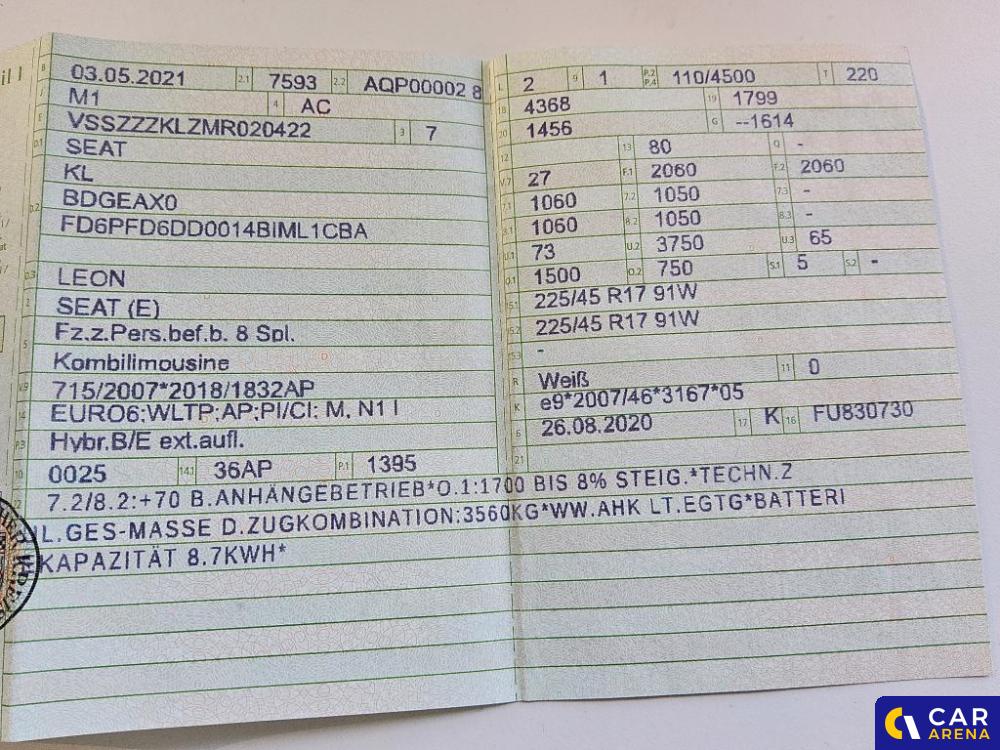 B 03.05.2021 2.1 7593 2.2 AQP00002 8
J M1 4 AC
E VSSZZZKLZMR020422 3 7
D.1 SEAT
KL
D.2 BDGEAX0
FD6PFD6DD0014BIML1CBA
D.3 LEON
2 SEAT (E)
5 Fz.z.Pers.bef.b. 8 Spl.
Kombilimousine
V.9 715/2007*2018/1832AP
14 EURO6;WLTP;AP;PI/CI; M, N1 I
P.3 Hybr.B/E ext.aufl.
10 0025 14.1 36AP P.1 1395
L 2 9 1 P.2 P.4 110/4500 T 220
18 4368 19 1799
20 1456 G --1614
12 13 80 Q -
V.7 27 F.1 2060 F.2 2060
7.1 1060 7.2 1050 7.3 -
8.1 1060 8.2 1050 8.3 -
U.1 73 U.2 3750 U.3 65
O.1 1500 O.2 750 S.1 5 S.2 -
15.1 225/45 R17 91W
15.2 225/45 R17 91W
15.3 -
R Weiß 11 0
K e9*2007/46*3167*05
6 26.08.2020 17 K 16 FU830730
21
22 7.2/8.2:+70 B.ANHÄNGEBETRIEB*O.1:1700 BIS 8% STEIG.*TECHN.Z
L.GES-MASSE D.ZUGKOMBINATION:3560KG*WW.AHK LT.EGTG*BATTERI
KAPAZITÄT 8.7KWH*
CAR
ARENA